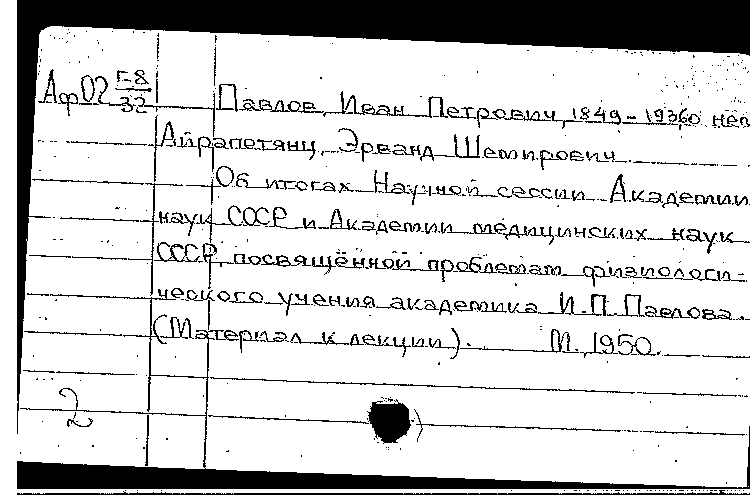 Аф02 Г-8/32
Павлов, Иван Петрович, 1849-1936, о нем
Айрапетянц, Эрванд Шемирович
Об итогах Научной сессии Академии
наук СССР и Академии медицинских наук
СССР, посвящённой проблемам физиологи-
ческого учения академика И.П. Павлова.
(Материал к лекции). М., 1950.
2